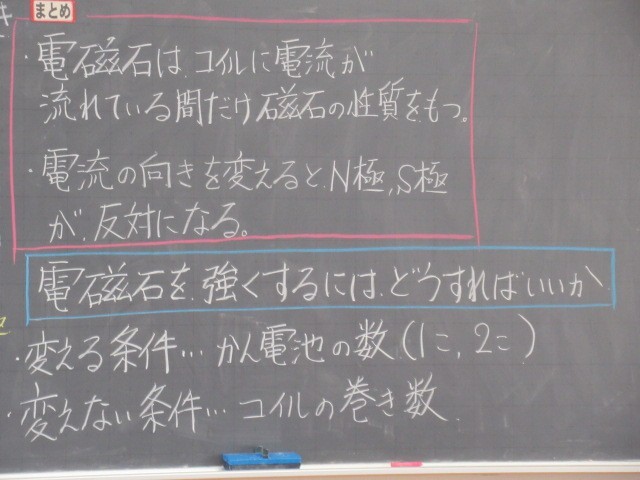 まとめ
・電磁石は、コイルに電流が
流れている間だけ磁石の性質をもつ。
・電流の向きを変えると、N極、S極
が、反対になる。
電磁石を、強くするには、どうすればいいか
・変える条件…かん電池の数(1こ、2こ)
・変えない条件…コイルの巻き数